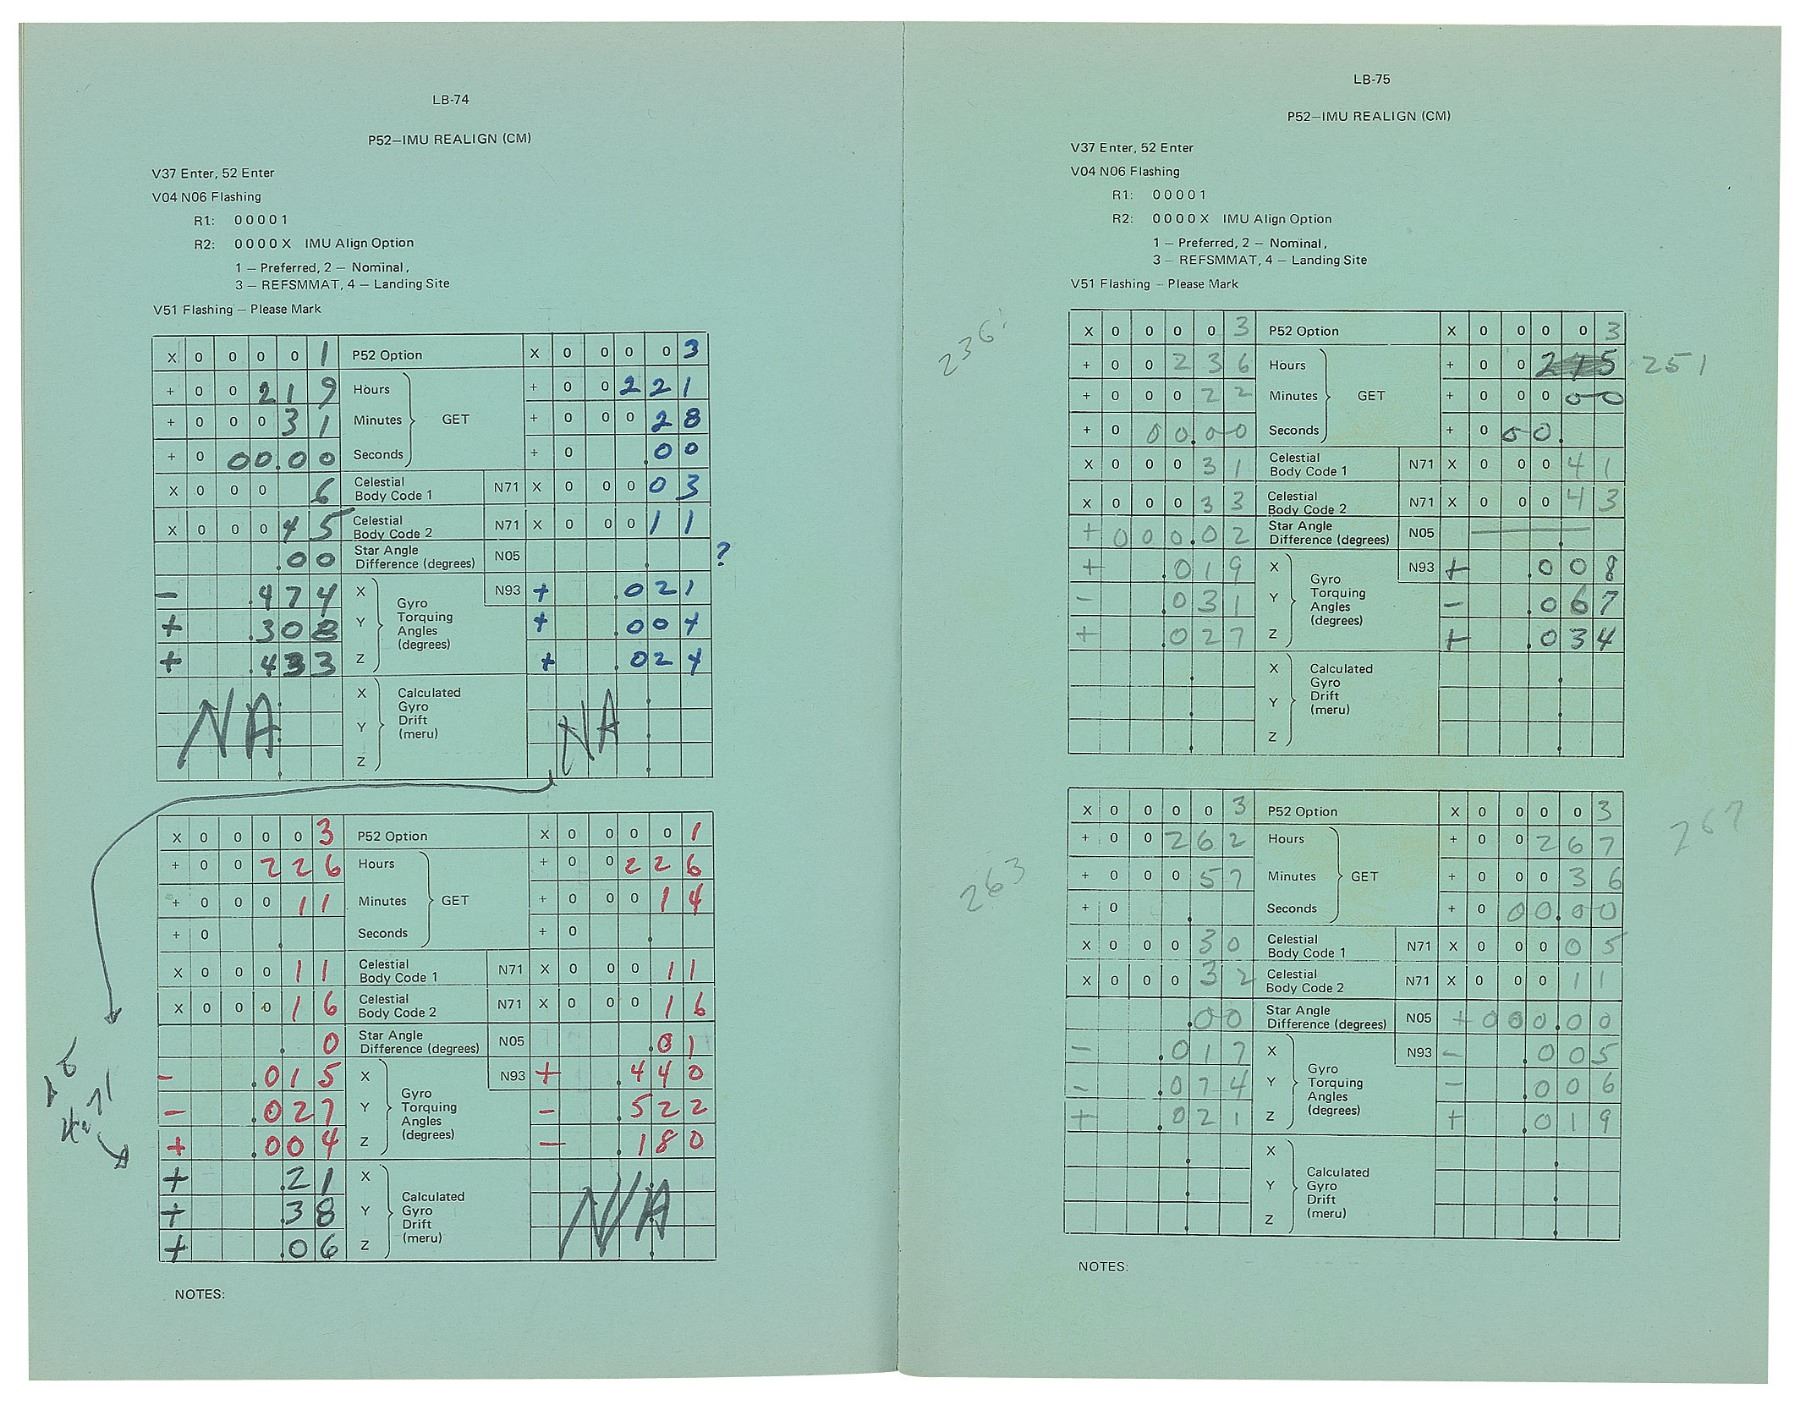 LB-74
P52—IMU REALIGN (CM)
V37 Enter, 52 Enter
V04 N06 Flashing
R1: 00001
R2: 0000X IMU Align Option
1 — Preferred, 2 — Nominal,
3 — REFSMMAT, 4 — Landing Site
V51 Flashing — Please Mark
X 0 0 0 0 1 P52 Option X 0 0 0 0 3
+ 0 0 2 1 9 Hours + 0 0 2 2 1
+ 0 0 0 3 1 Minutes GET + 0 0 0 2 8
+ 0 00.00 Seconds + 0 .00
X 0 0 0 6 Celestial Body Code 1 N71 X 0 0 0 0 3
X 0 0 0 4 5 Celestial Body Code 2 N71 X 0 0 0 1 1
.00 Star Angle Difference (degrees) N05 . ?
- .474 X Gyro Torquing Angles (degrees) N93 + .021
+ .308 Y + .004
+ .433 Z + .024
NA X Y Z Calculated Gyro Drift (meru) NA
X 0 0 0 0 3 P52 Option X 0 0 0 0 1
+ 0 0 2 2 6 Hours + 0 0 2 2 6
+ 0 0 0 1 1 Minutes GET + 0 0 0 1 4
+ 0 . Seconds + 0 .
X 0 0 0 1 1 Celestial Body Code 1 N71 X 0 0 0 1 1
X 0 0 0 1 6 Celestial Body Code 2 N71 X 0 0 0 1 6
. 0 Star Angle Difference (degrees) N05 .01
- .015 X Gyro Torquing Angles (degrees) N93 + .440
- .027 Y - .522
+ .004 Z - .180
+ .21 X Calculated Gyro Drift (meru) N/A
+ .38 Y
+ .06 Z
NOTES:
LB-75
P52—IMU REALIGN (CM)
V37 Enter, 52 Enter
V04 N06 Flashing
R1: 00001
R2: 0000X IMU Align Option
1 — Preferred, 2 — Nominal,
3 — REFSMMAT, 4 — Landing Site
V51 Flashing — Please Mark
X 0 0 0 0 3 P52 Option X 0 0 0 0 3
236 + 0 0 2 3 6 Hours + 0 0 2 5 251
+ 0 0 0 2 2 Minutes GET + 0 0 0 0 0
+ 0 00.00 Seconds + 0 00.
X 0 0 0 3 1 Celestial Body Code 1 N71 X 0 0 0 4 1
X 0 0 0 3 3 Celestial Body Code 2 N71 X 0 0 0 4 3
+ 000.02 Star Angle Difference (degrees) N05 .
+ .019 X Gyro Torquing Angles (degrees) N93 + .008
- .031 Y - .067
+ .027 Z + .034
X Y Z Calculated Gyro Drift (meru)
X 0 0 0 0 3 P52 Option X 0 0 0 0 3
+ 0 0 2 6 2 Hours + 0 0 2 6 7 267
263 + 0 0 0 5 7 Minutes GET + 0 0 0 3 6
+ 0 . Seconds + 0 00.00
X 0 0 0 3 0 Celestial Body Code 1 N71 X 0 0 0 0 5
X 0 0 0 3 2 Celestial Body Code 2 N71 X 0 0 0 1 1
.00 Star Angle Difference (degrees) N05 + 000.00
- .017 X Gyro Torquing Angles (degrees) N93 - .005
- .074 Y - .006
+ .021 Z + .019
X Y Z Calculated Gyro Drift (meru)
NOTES: